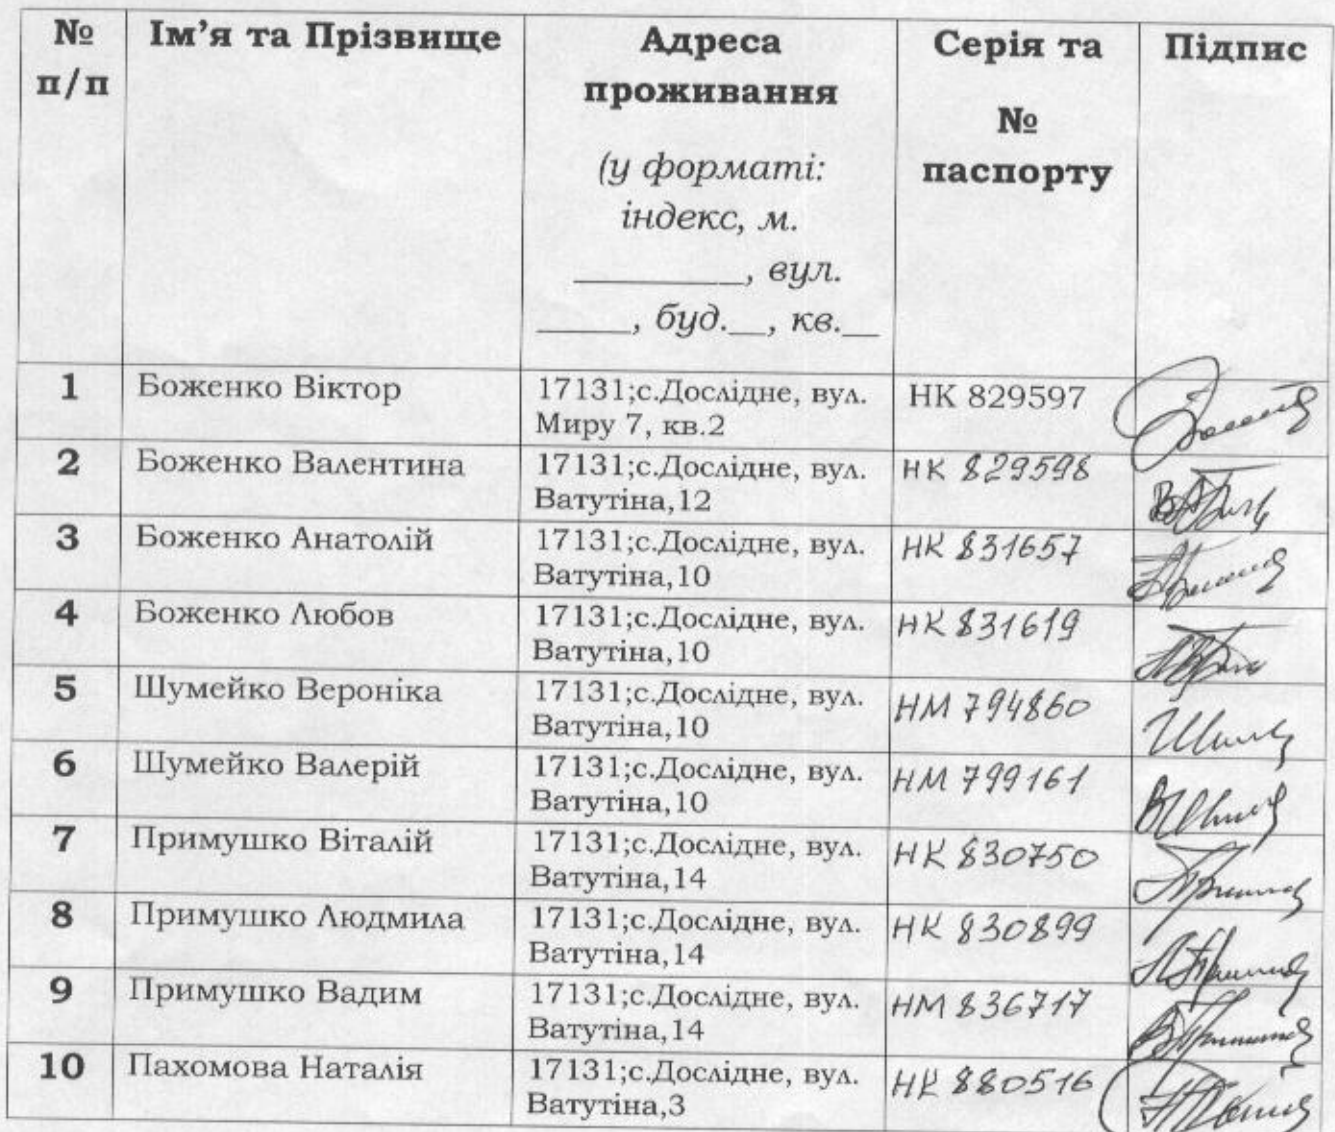 № п/п Ім’я та Прізвище Адреса проживання (у форматі: індекс, м. _________, вул. _____, буд.__, кв.__ Серія та № паспорту Підпис
1 Боженко Віктор 17131;с.Дослідне, вул. Миру 7, кв.2 НК 829597
2 Боженко Валентина 17131;с.Дослідне, вул. Ватутіна,12 НК 829598
3 Боженко Анатолій 17131;с.Дослідне, вул. Ватутіна,10 НК 831657
4 Боженко Любов 17131;с.Дослідне, вул. Ватутіна,10 НК 831619
5 Шумейко Вероніка 17131;с.Дослідне, вул. Ватутіна,10 НМ 794860
6 Шумейко Валерій 17131;с.Дослідне, вул. Ватутіна,10 НМ 799161
7 Примушко Віталій 17131;с.Дослідне, вул. Ватутіна,14 НК 830750
8 Примушко Людмила 17131;с.Дослідне, вул. Ватутіна,14 НК 830899
9 Примушко Вадим 17131;с.Дослідне, вул. Ватутіна,14 НМ 836717
10 Пахомова Наталія 17131;с.Дослідне, вул. Ватутіна,3 НК 880516